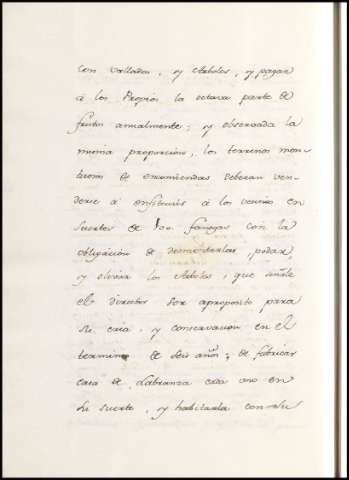 con vallados, y Arboles, y pagar
á los Propios la octava parte de
frutos anualmente; y observada la
misma proporcion, los terrenos mon-
tuosos de encomiendas deberan ven-
derse á enfiteusis á los vecinos en
suertes de 100. fanegas con la
obligacion de desmontarlas, podar,
y olivar los Arboles, que señale
el director ser aproposito para
su caia, y conservacion en el
termino de seis años; de fabricar
casa de Labranza cada uno en
su suerte, y habitarla con su